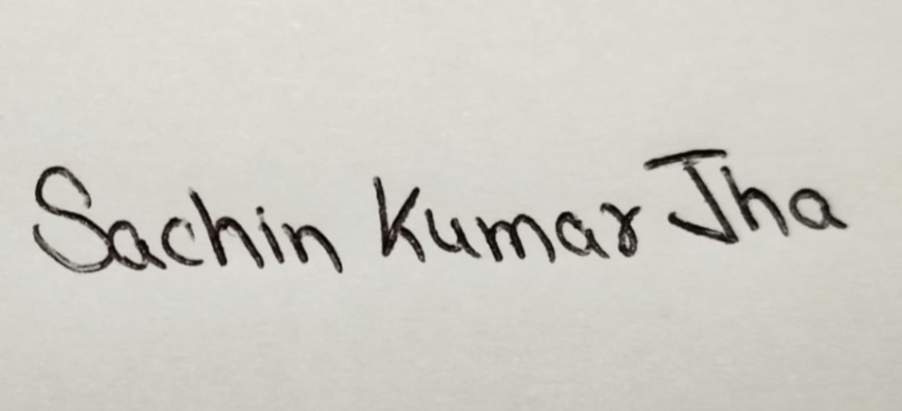 Sachin Kumar Jha